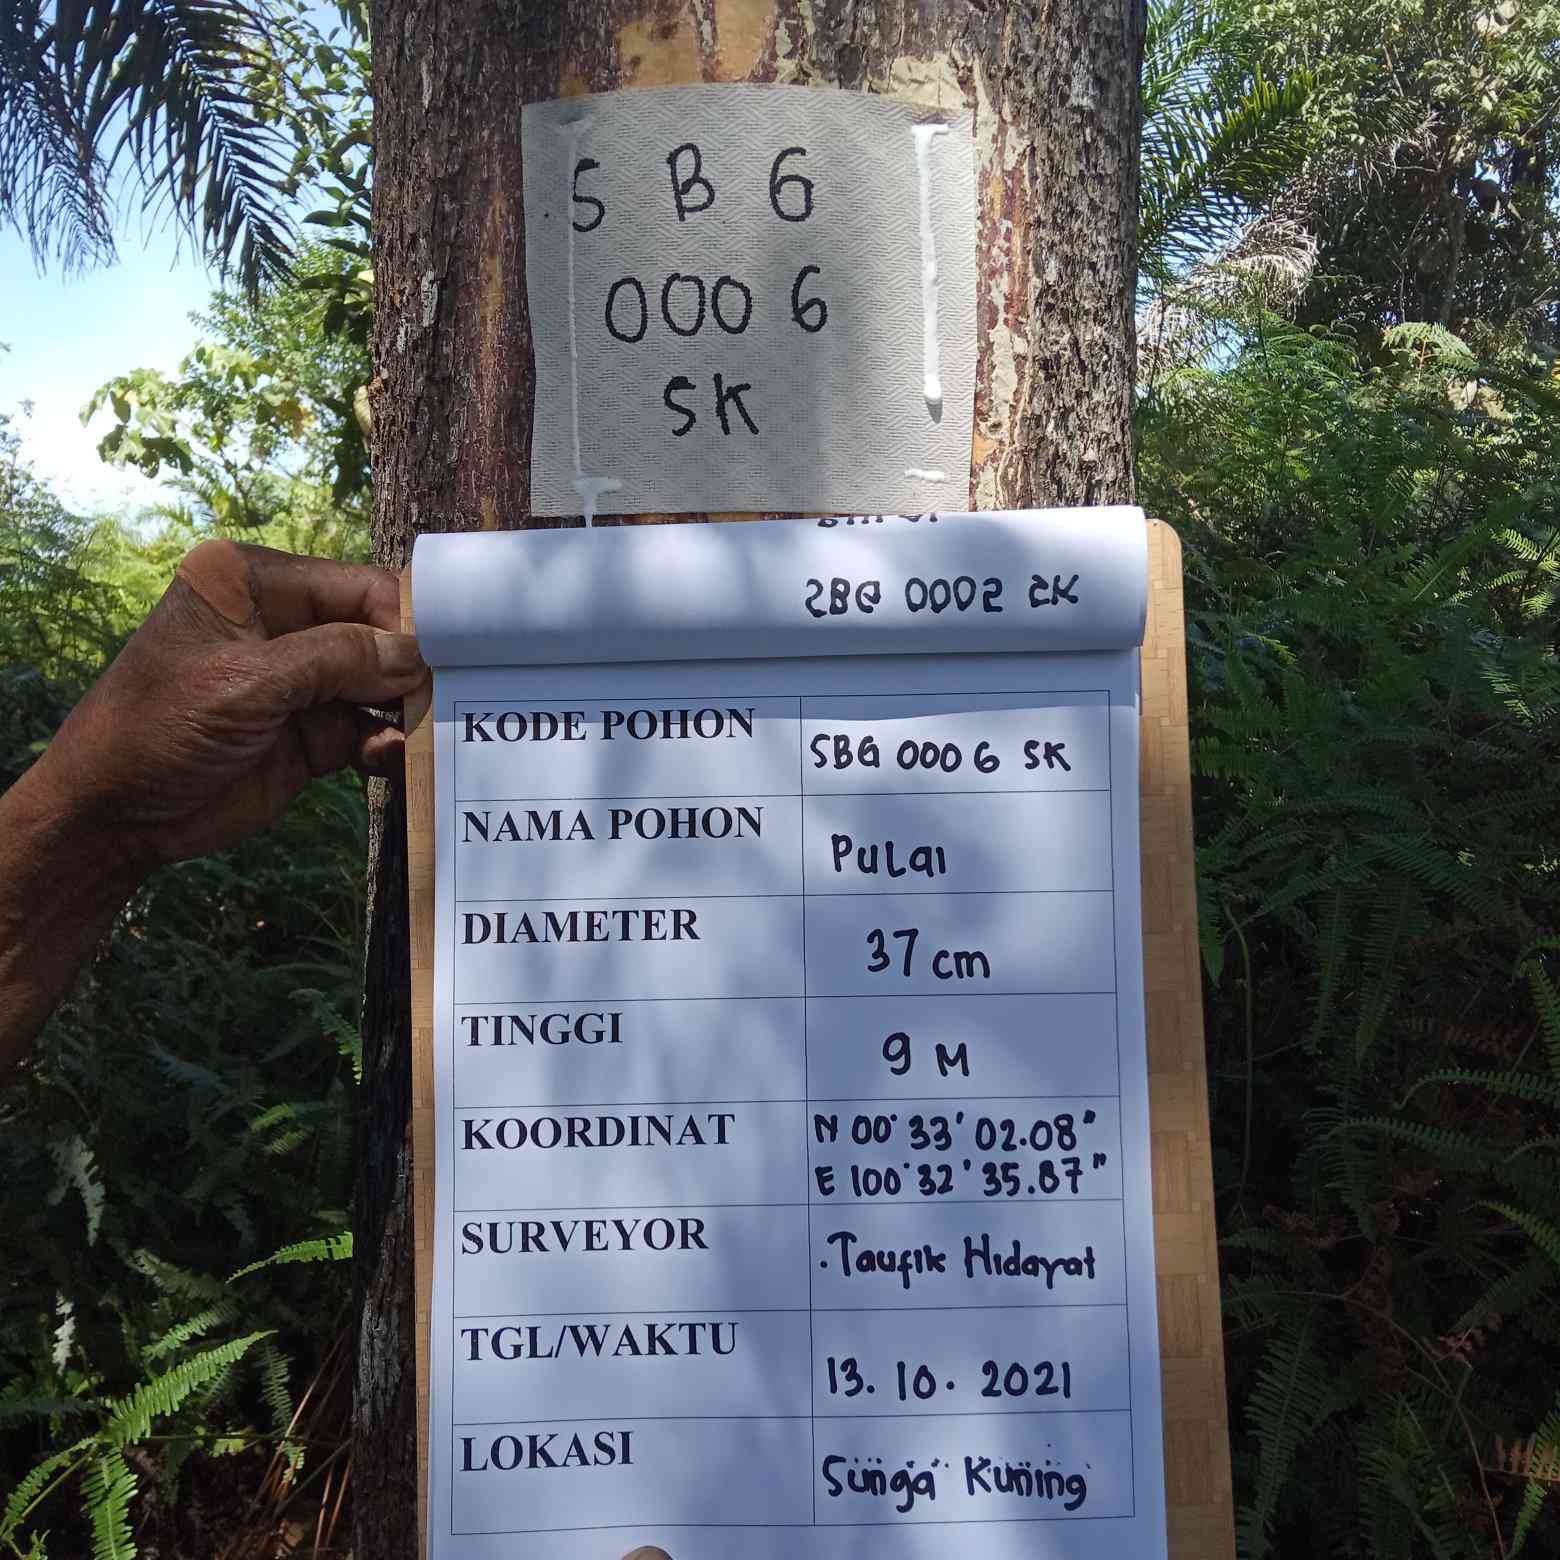 SBG
0006
SK
SBG 0002 SK
KODE POHON SBG 0006 SK
NAMA POHON Pulai
DIAMETER 37 cm
TINGGI 9 M
KOORDINAT N 00° 33' 02.08"
E 100° 32' 35.87"
SURVEYOR Taufik Hidayat
TGL/WAKTU 13. 10. 2021
LOKASI Sunga Kuning